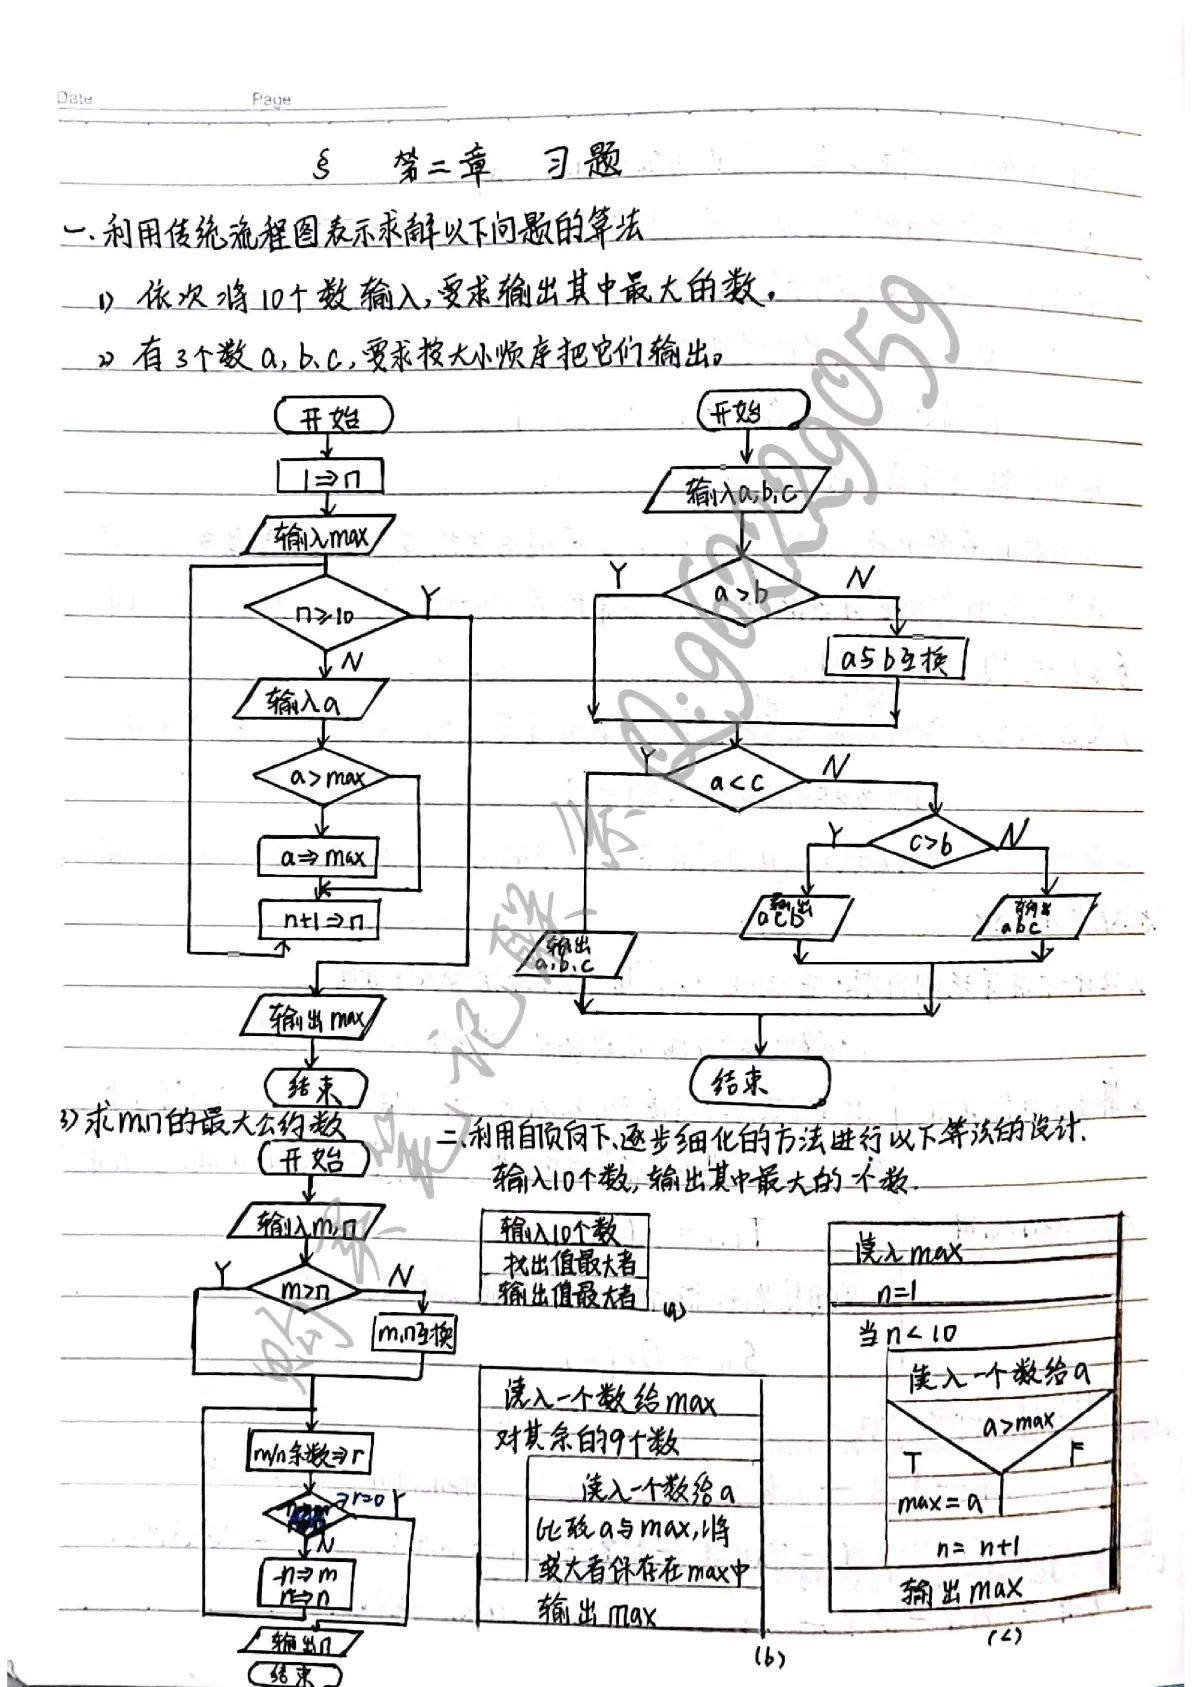 Date Page
§ 第二章 习题
一.利用传统流程图表示求解以下问题的算法
1) 依次将10个数输入,要求输出其中最大的数。
2) 有3个数a,b,c,要求按大小顺序把它们输出。
开始
1⇒n
输入max
n≥10
Y
N
输入a
a>max
a⇒max
n+1⇒n
输出max
结束
开始
输入a,b,c
Y
a>b
N
a与b互换
Y
a<c
N
Y
c>b
N
输出
a,b,c
输出
a c b
输出
a b c
结束
3) 求m,n的最大公约数
开始
输入m,n
Y
m>n
N
m,n互换
m/n余数⇒r
r=0
Y
N
n⇒m
r⇒n
输出n
结束
二.利用自顶向下、逐步细化的方法进行以下算法的设计.
输入10个数,输出其中最大的个数.
输入10个数
找出值最大者
输出值最大者
(a)
读入一个数给max
对其余的9个数
读入一个数给a
比较a与max,将
较大者保存在max中
输出max
(b)
读入max
n=1
当n<10
读入一个数给a
a>max
T
F
max=a
n=n+1
输出max
(c)